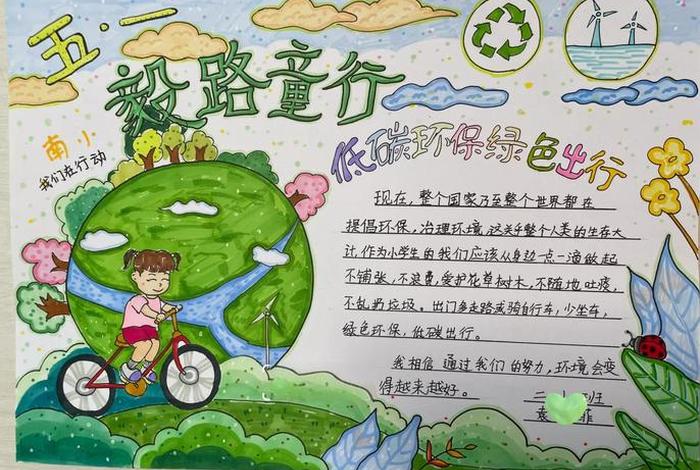 五·一
毅路童行
南小
我们在行动
低碳环保绿色出行
现在，整个国家乃至整个世界都在
提倡环保，治理环境，这关乎整个人类的生存大
计，作为小学生的我们应该从身边一点一滴做起
不铺张，不浪费，爱护花草树木，不随地吐痰，
不乱扔垃圾。出门多走路或骑自行车，少坐车，
绿色环保，低碳出行。
我相信通过我们的努力，环境会变
得越来越好。
二 班
袁 菲